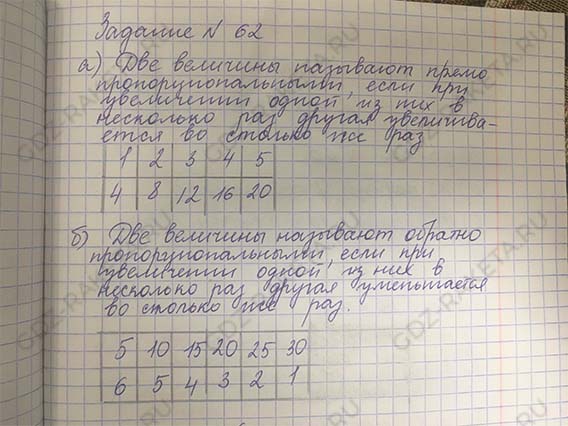 Задание № 62
а) Две величины называют прямо
пропорциональными, если при
увеличении одной из них в
несколько раз другая увеличива-
ется во столько же раз
1 2 3 4 5
4 8 12 16 20
б) Две величины называют обратно
пропорциональными, если при
увеличении одной из них в
несколько раз другая уменьшается
во столько же раз.
5 10 15 20 25 30
6 5 4 3 2 1
GDZ-RAKETA.RU